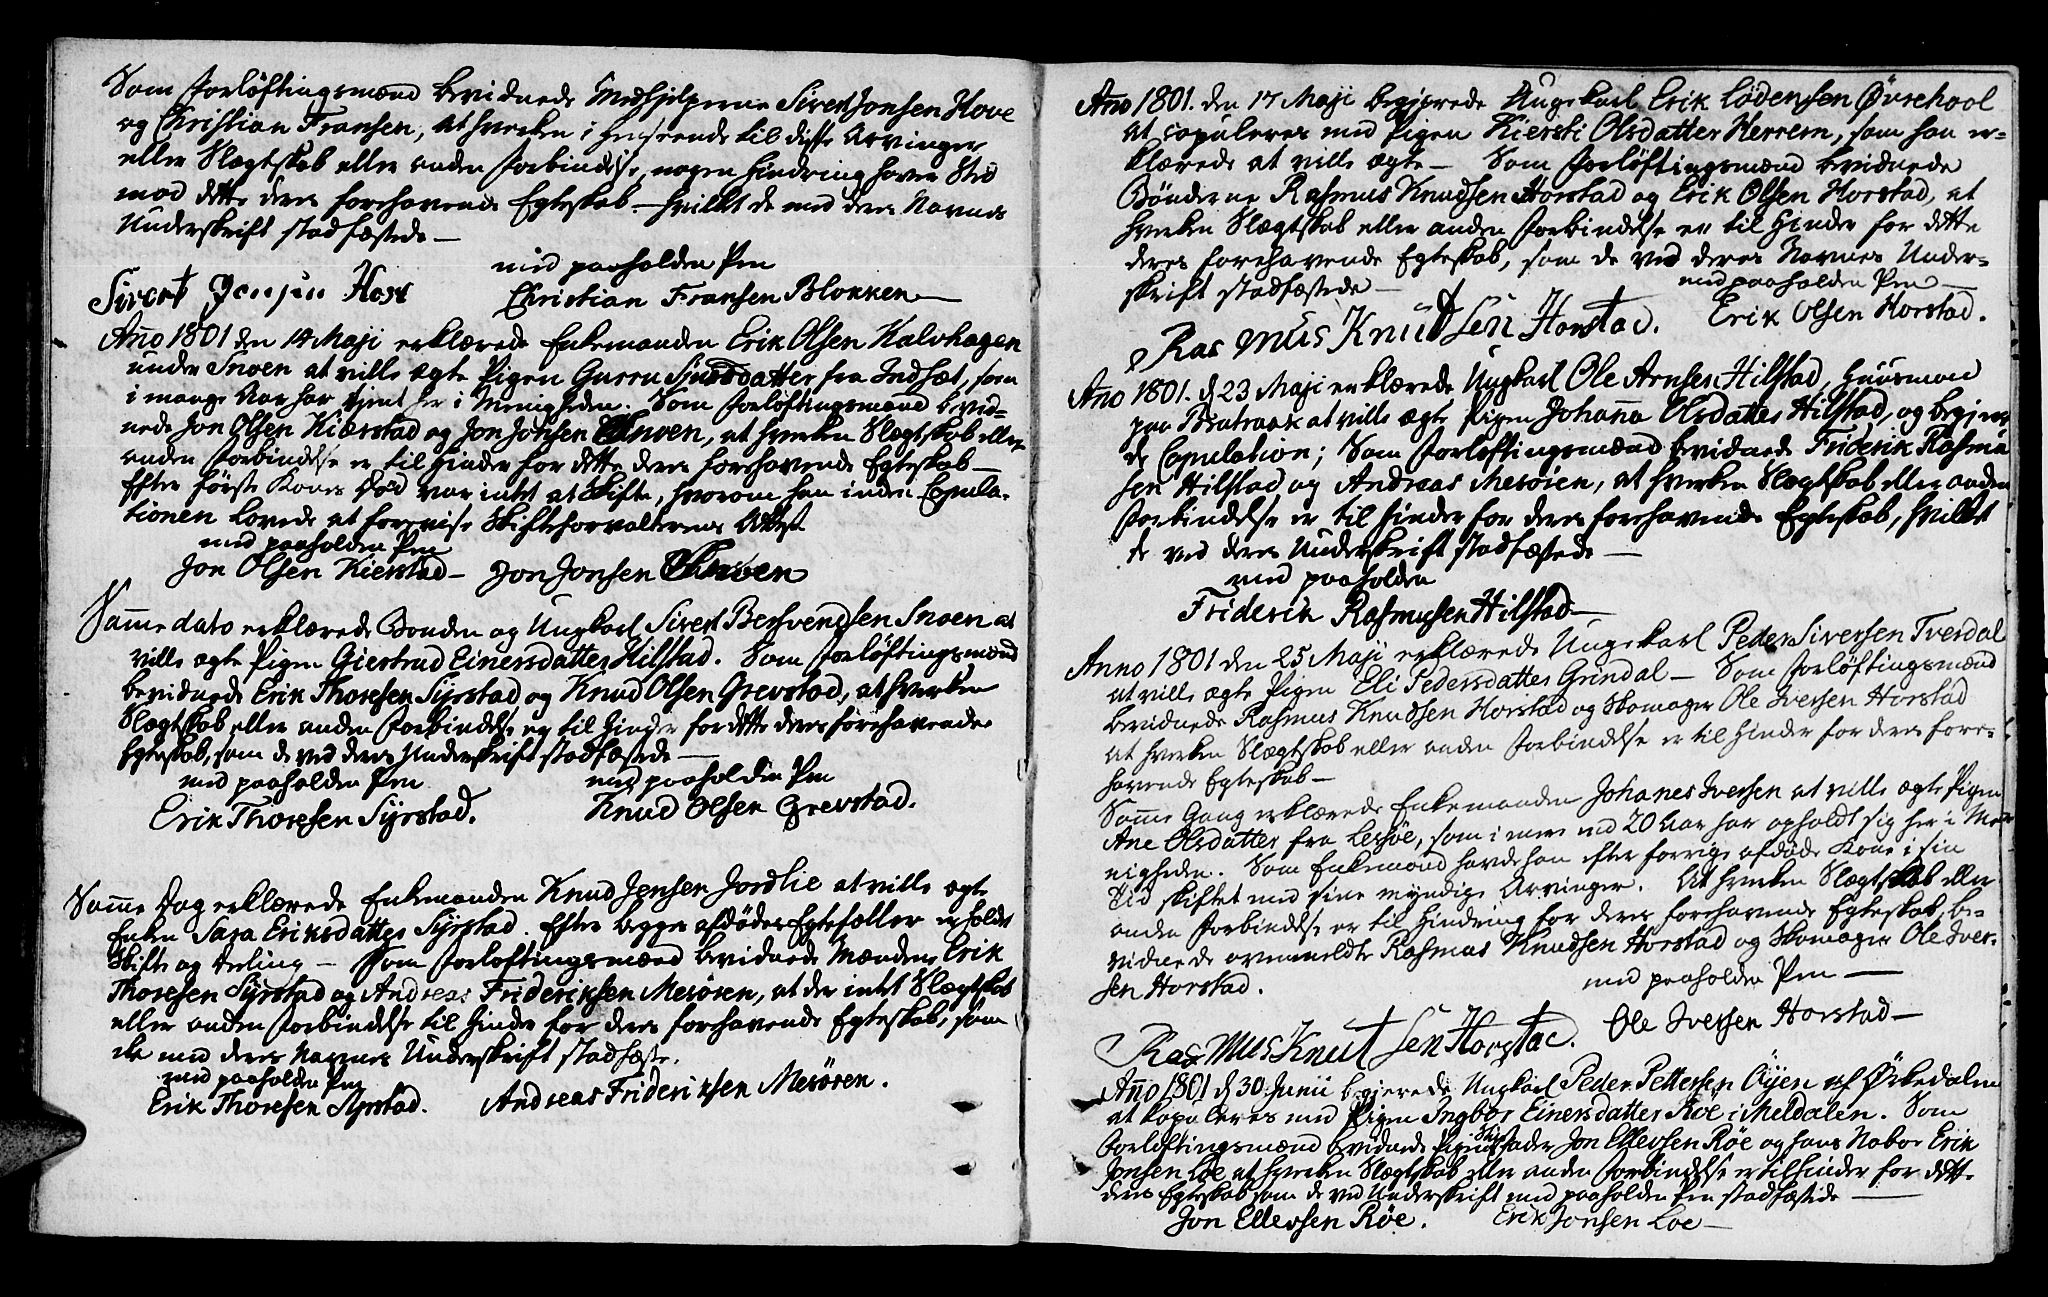 Som Forløftingsmænd bevidnede Medhjelperne Sivert Jonsen Hove
og Christian Fransen, at hverken i Henseende til disse Arvinger
eller Slægtskab eller anden Forbindelse, nogen Hindring haver Sted
mod dette deres forehavende Egteskab – hvilket de med deres Navnes
Underskrift stadfæstede –
med paaholden Pen
Sivert Jonsen Hove Christian Fransen Blokken –
Año 1801 den 14 Maji erklærede Enkemanden Erik Olsen Kalvhagen
under Snoen at ville egte Pigen Guru Sjursdatter fra Indsæt, som
i mange Aar har tjent her i Menigheden. Som Forløftingsmænd bevid-
nede Jon Olsen Kierstad og Jon Jonsen Snoen, at hverken Slegtskab eller
anden Forbindelse er til Hinder for dette deres forehavende Egteskab –
Efter første Kones Død var intet at skifte, hvorom han inden Copula-
tionen lovede at forevise Skifteforvalterens Attest
med paaholden Pen
Jon Olsen Kierstad – Jon Jonsen Snoen
Sam̃e dato erklærede Bonden og Ungkarl Sivert Bersvendsen Snoen at
ville egte Pigen Giertrud Einersdatter Hilstad. Som Forløftingsmænd
bevidnede Erik Thoresen Syrstad og Knud Olsen Grevstad, at hverken
Slægtskab eller anden Forbindelse er til Hinder for dette deres forehavende
Egteskab, som de ved deres Underskrift stadfæstede –
med paaholden Pen med paaholden Pen
Erik Thoresen Syrstad. Knud Olsen Grevstad.
Sam̃e Dag erklærede Enkemanden Knud Jensen Jordlie at ville egte
Enken Sara Eriksdatter Syrstad. Efter begge afdøde Egtefæller er holdt
Skifte og Deling – Som Forløftingsmænd bevidnede Mændene Erik
Thoresen Syrstad og Andreas Frideriksen Mesøren, at der intet Slægtskab
eller anden Forbindelse til Hinder for deres forehavende Egteskab, som
de med deres Navnes Underskrift stadfæste.
med paaholden Pen
Erik Thoresen Syrstad. Andreas Frideriksen Mesøren.
Año 1801. den 17 Maji begjerede Ungekarl Erik Lodensen Øvrehool
at copuleres med Pigen Kiersti Olsdatter Herrem, som han er-
klærede at ville egte – Som Forløftingsmænd bevidnede
Bønderne Rasmus Knudsen Horstad og Erik Olsen Horstad, at
hverken Slægtskab eller anden Forbindelse er til Hinder for dette
deres forehavende Egteskab, som de ved deres Navnes Under-
skrift stadfæstede – med paaholden Pen –
Rasmus Knudtsen Horstad. Erik Olsen Horstad.
Año 1801. d 23 Maji erklærede Ungkarl Ole Arnsen Hilstad, Huusmand
paa at ville egte Pigen Johaña Olsdatter Hilstad, og begjer
de Copulation; Som Forløftingsmænd bevidnede Friderik Rasmu
sen Hilstad og Andreas Mesøren, at hverken Slægtskab eller anden
Forbindelse er til Hinder for deres forehavende Egteskab, hvilket
de ved deres Underskrift stadfæstede –
med paaholden
Friderik Rasmusen Hilstad –
Anno 1801 den 25 Maji erklærede Ungekarl Peder Siversen Tverdal
at ville egte Pigen Eli Pedersdatter Grindal – Som Forløftingsmænd
bevidnede Rasmus Knudsen Horstad og Skomager Ole Iversen Horstad
at hverken Slægtskab eller anden Forbindelse er til Hinder for deres fore-
havende Egteskab –
Sam̃e Gang erklærede Enkemanden Johanes Iversen at ville egte Pigen
Ane Olsdatter fra Lesjøe, som i mere end 20 Aar har opholdt sig her i Me-
nigheden. Som Enkemand havde han efter forrige afdøde Kone i sin
Tid skiftet med sine myndige Arvinger. At hverken Slægtskab eller
anden Forbindelse er til Hindring for deres forehavende Egteskab, be-
vidnede ovenmeldte Rasmus Knudsen Horstad og Skomager Ole Iver-
sen Horstad. med paaholden Pen –
Rasmus Knutsen Horstad. Ole Iversen Horstad –
Año 1801 d 30 Junii begierede Ungkarl Peder Pettersen Øyen af Ørkedalen
at kopuleres med Pigen Ingbor Einersdatter Røe i Meldalen. Som
Forløftingsmænd bevidnede Pigens Stiffader Jon Ellevsen Røe og hans Nabo Erik
Jonsen Loe at hverken Slægtskab eller anden Forbindelse er til Hinder for dette
deres Egteskab som de ved Underskrift med paaholden Pen stadfæstede –
Jon Ellevsen Røe. Erik Jonsen Loe –